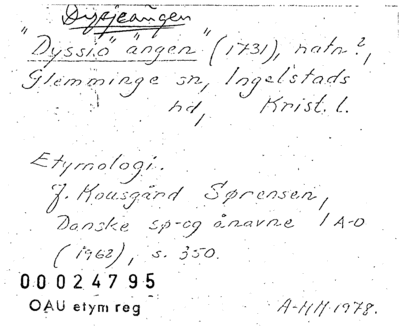 Dyssjeängen
"Dyssiö" ängen" (1731), natn?,
Glemminge sn, Ingelstads
hd, Krist. l.
Etymologi.
J. Kousgård Sørensen,
Danske sø-og ånavne I A-D
(1968), s. 350.
00024795
OAU etym reg
A-HH 1978.